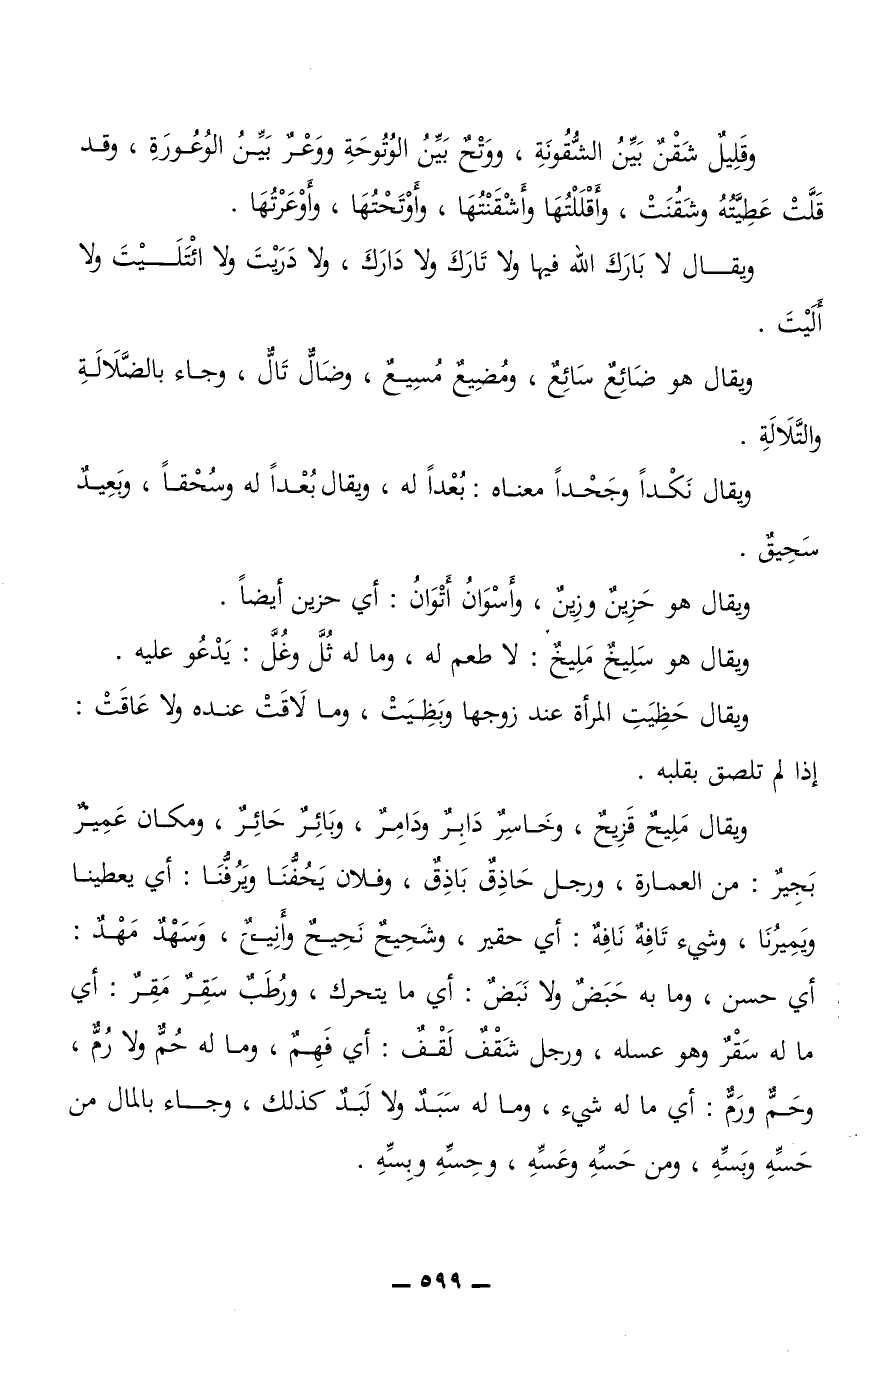 وقَلِيلٌ شَقْنٌ بَيِّنُ الشُّقُونَةِ ، ووَتْحٌ بَيِّنُ الوُتُوحَةِ ووَعْرٌ بَيِّنُ الوُعُورَةِ ، وقد
قَلَّتْ عَطِيَّتُهُ وشَقُنَتْ ، وأَقْلَلْتُهَا وأَشْقَنْتُهَا ، وأَوْتَحْتُهَا ، وأَوْعَرْتُهَا .
ويقال لا بَارَكَ الله فيها ولا تَارَكَ ولا دَارَكَ ، ولا دَرَيْتَ ولا ائْتَلَيْتَ ولا
أَلَيْتَ .
ويقال هو ضَائِعٌ سَائِعٌ ، ومُضِيعٌ مُسِيعٌ ، وضَالٌّ تَالٌّ ، وجاء بالضَّلَالَةِ
والتَّلَالَةِ .
ويقال نَكْداً وجَحْداً معناه : بُعْداً له ، ويقال بُعْداً له وسُحْقاً ، وبَعِيدٌ
سَحِيقٌ .
ويقال هو حَزِينٌ وزِينٌ ، وأَسْوَانُ أَتْوَانُ : أي حزين أيضاً .
ويقال هو سَلِيخٌ مَلِيخٌ : لا طعم له ، وما له ثُلَّ وغُلَّ : يَدْعُو عليه .
ويقال حَظِيَتِ المرأة عند زوجها وبَظِيَتْ ، وما لَاقَتْ عنده ولا عَاقَتْ :
إذا لم تلصق بقلبه .
ويقال مَلِيحٌ قَزِيحٌ ، وخَاسِرٌ دَابِرٌ ودَامِرٌ ، وبَائِرٌ حَائِرٌ ، ومكان عَمِيرٌ
بَجِيرٌ : من العمارة ، ورجل حَاذِقٌ بَاذِقٌ ، وفلان يَحُفُّنَا ويَرُفُّنَا : أي يعطينا
ويَمِيرُنَا ، وشيء تَافِهٌ نَافِهٌ : أي حقير ، وشَحِيحٌ نَحِيحٌ وأَنِيحٌ ، وَسَهْدٌ مَهْدٌ :
أي حسن ، وما به حَبَضٌ ولا نَبَضٌ : أي ما يتحرك ، ورُطَبٌ سَقِرٌ مَقِرٌ : أي
ما له سَقْرٌ وهو عسله ، ورجل ثَقْفٌ لَقْفٌ : أي فَهِمٌ ، وما له حُمٌّ ولا رُمٌّ ،
وحَمٌّ ورَمٌّ : أي ما له شيء ، وما له سَبَدٌ ولا لَبَدٌ كذلك ، وجاء بالمال من
حَسِّهِ وبَسِّهِ ، ومن حَسِّهِ وعَسِّهِ ، وحِسِّهِ وبِسِّهِ .
— ٥٩٩ —